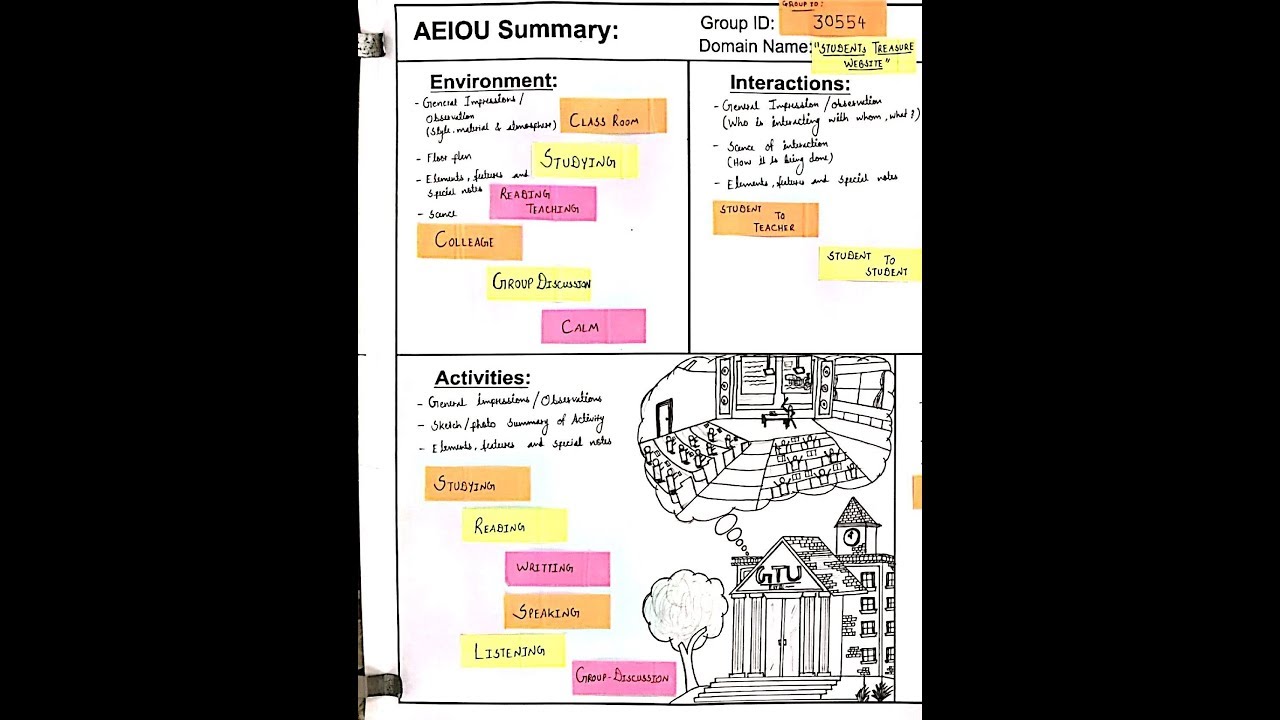 AEIOU Summary:
Group ID:
GROUP ID:
30554
Domain Name:
"STUDENTs TREASURE
WEBSITE"
Environment:
- General Impressions/
Observation
(Style-material & atmosphere)
- Floor plan
- Elements, features and
special notes
- Scence
CLASS ROOM
STUDYING
READING
TEACHING
COLLEAGE
GROUP DISCUSSION
CALM
Interactions:
- General Impression/observation
(Who is interacting with whom, what?)
- Scence of interaction
(How it is being done)
- Elements, features and special notes
STUDENT TO
TEACHER
STUDENT TO
STUDENT
Activities:
- General impressions/Observations
- Sketch/photo summary of Activity
- Elements, features and special notes
STUDYING
READING
WRITTING
SPEAKING
LISTENING
GROUP-DISCUSSION
GTU